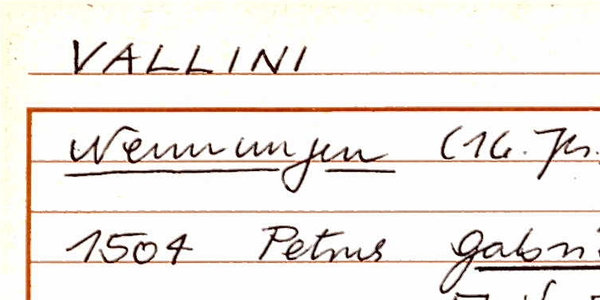 VALLINI
Nennungen (16. Jh.
1504 Petrus Gabri